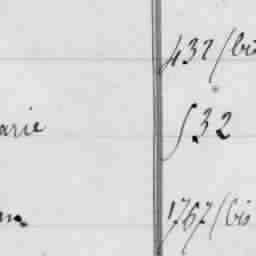 432 (bis
arie 532
1767 (bis